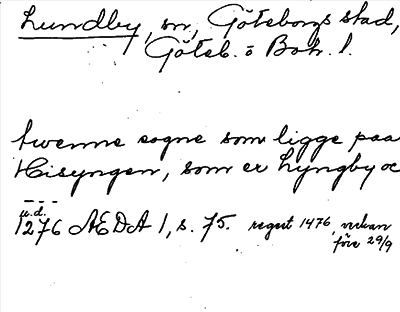 Lundby, sn, Göteborgs stad,
Göteb. o Boh. l.
twenne sogne som ligge paa
Hisyngen, som er Lyngby oc
---
u.d.
1276 AEDA 1, s. 75. regest 1476, veckan
före 29/9